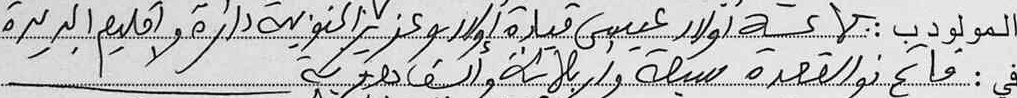 المولود ب : لاعسة أولاد عيسى قيادة أولاد بوعزيز الجنوبية دائرة وإقليم الجديدة
في : فاتح ذو القعدة سبعة وأربعمائة وألف هجرية